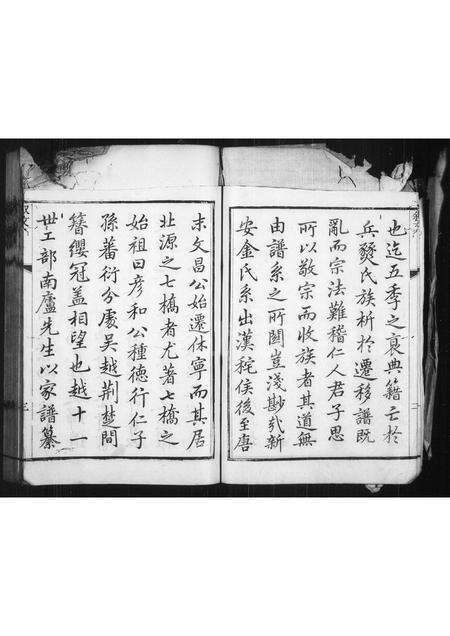 也迄五季之衰典籍亡於
兵燹氏族析於遷移譜既
亂而宗法難稽仁人君子思
所以敬宗而收族者其道無
由譜系之所關豈淺尠哉新
安金氏系出漢秺侯後至唐
末文昌公始遷休寧而其居
北源之七橋者尤著七橋之
始祖曰彦和公種德行仁子
孫蕃衍分處吳越荆楚間
簪纓冠盖相望也越十一
世工部南廬先生以家譜纂